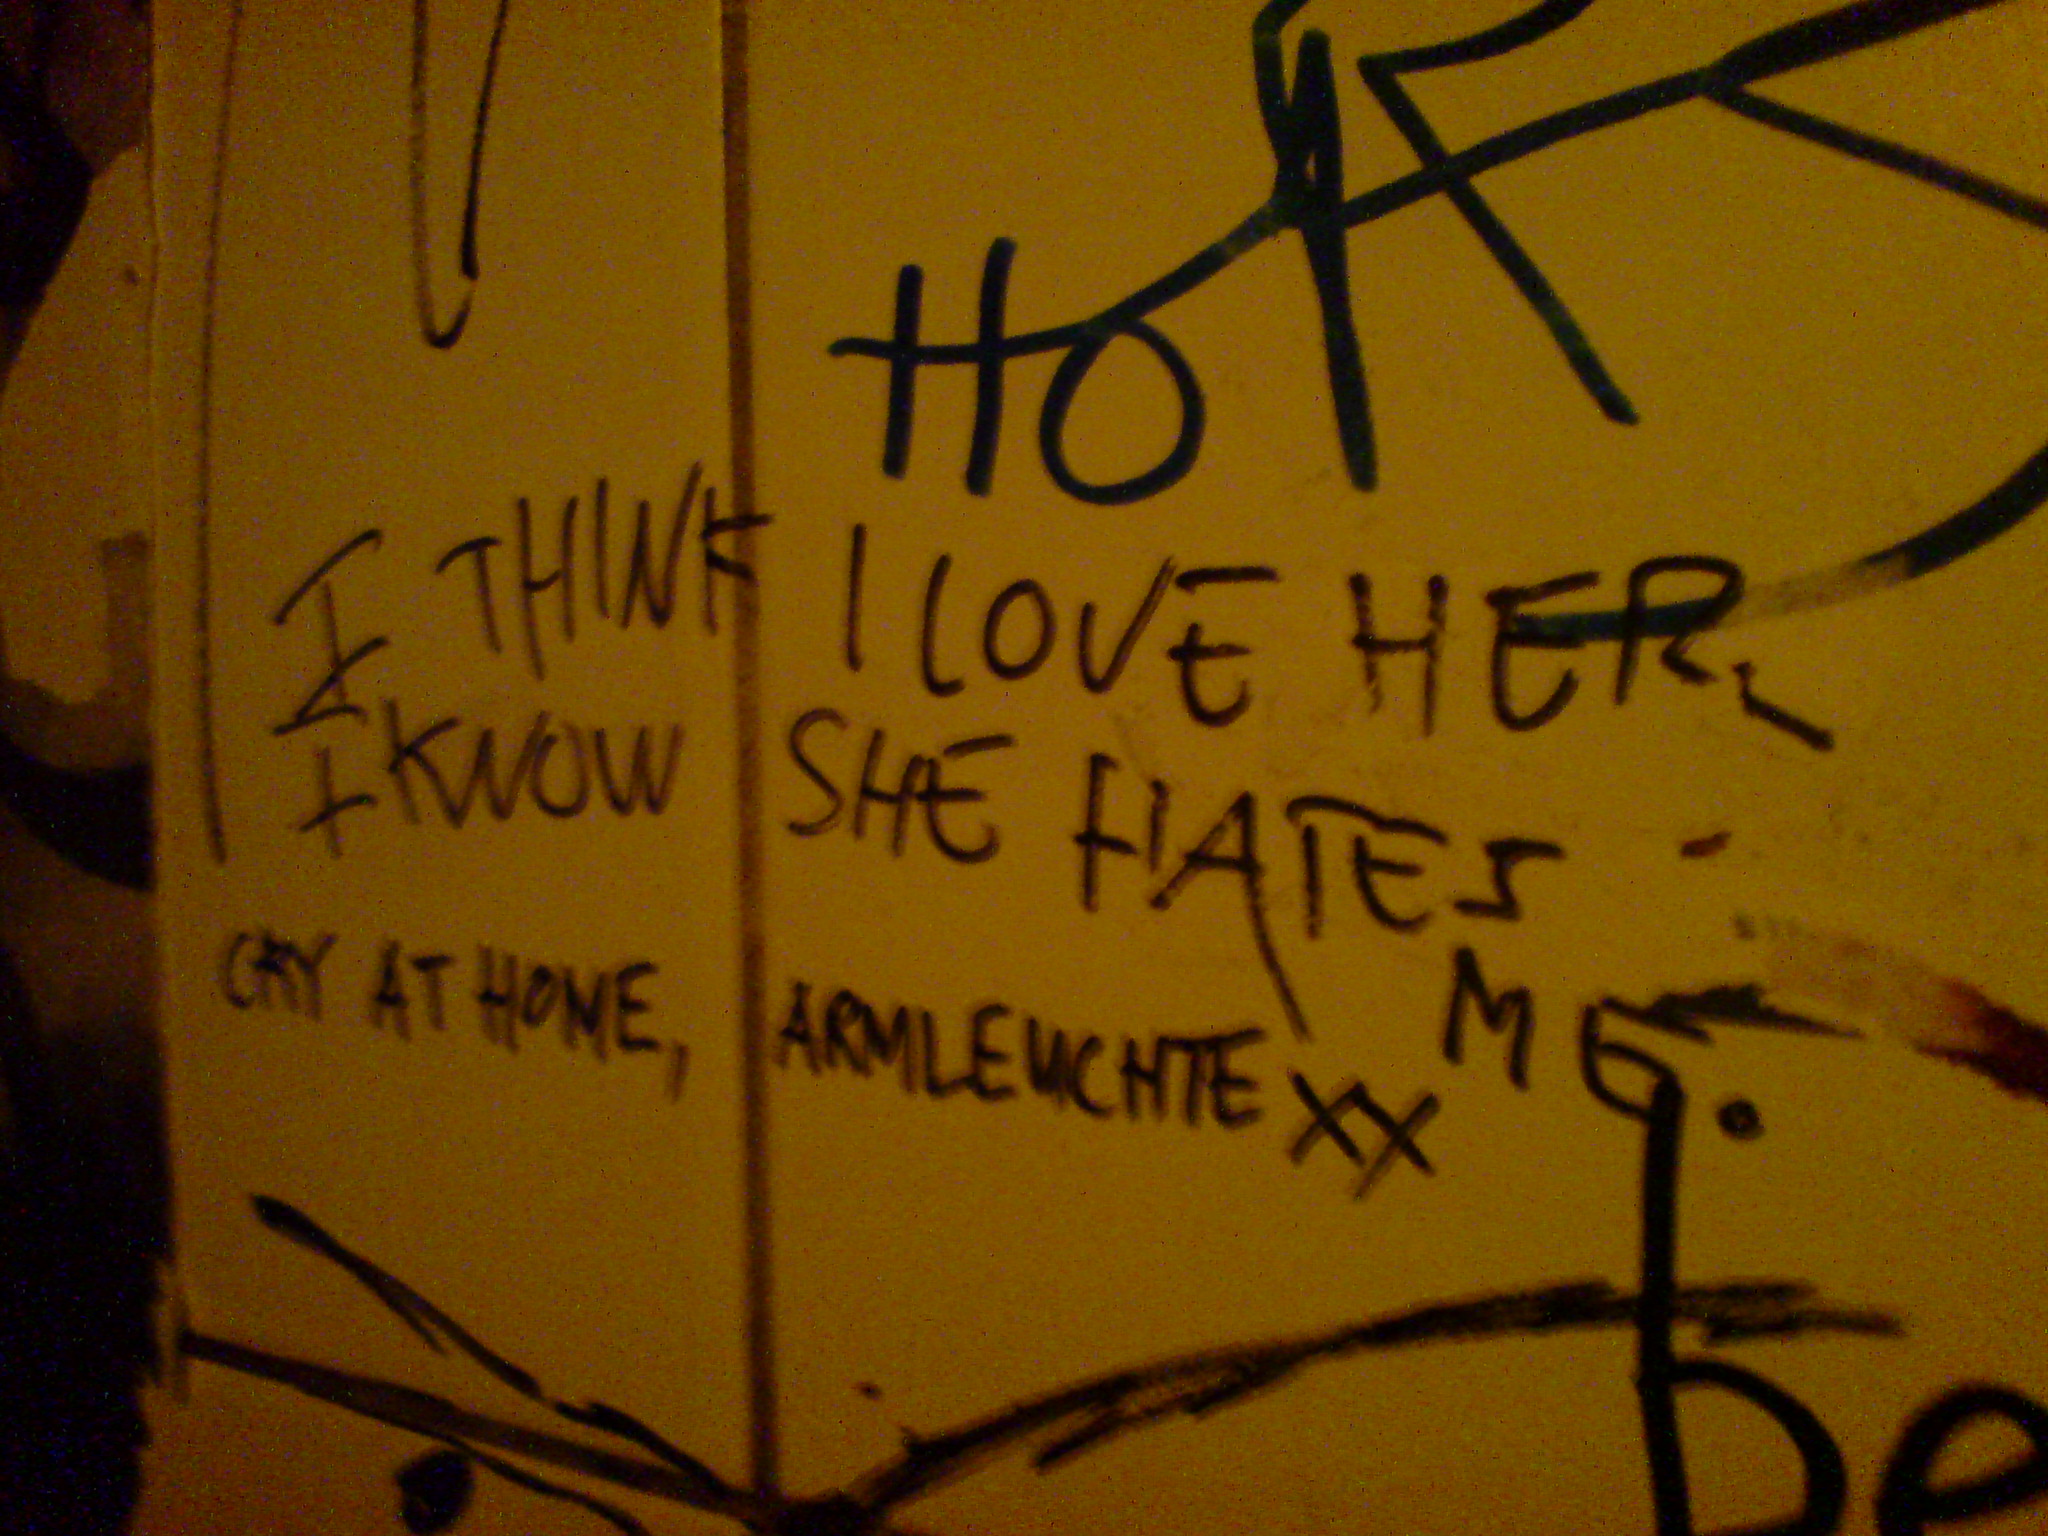 HO
I THINK I LOVE HER,
I KNOW SHE HATES
ME.
CRY AT HOME, ARMLEUCHTE XX
be